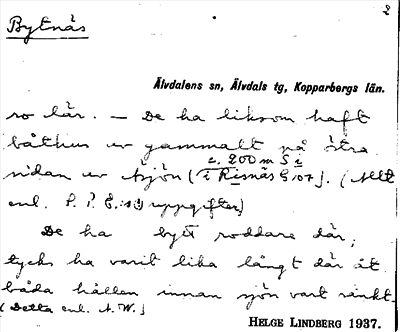 Bytnäs
2
Älvdalens sn, Älvdals tg, Kopparbergs län.
ro där. — De ha liksom haft
båthus av gammalt på östra
c. 200 m S i
sidan av sjön (i Risnäs G 107). (Allt
enl. P. P. E:s uppgifter)
De ha bytt roddare där;
tycks ha varit lika långt där åt
båda hållen innan sjön vart sänkt.
(Detta enl. A. W.)
HELGE LINDBERG 1937.